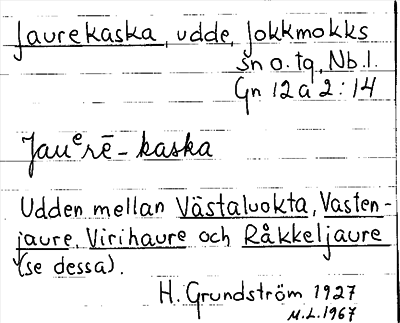 Jaurekaska, udde, Jokkmokks
sn o. tg, Nb.l.
Gn 12 a 2:14
Jauᵉrē-kaska
Udden mellan Västaluokta, Vasten-
jaure, Virihaure och Råkkeljaure
(se dessa).
H. Grundström 1927
M.L. 1967